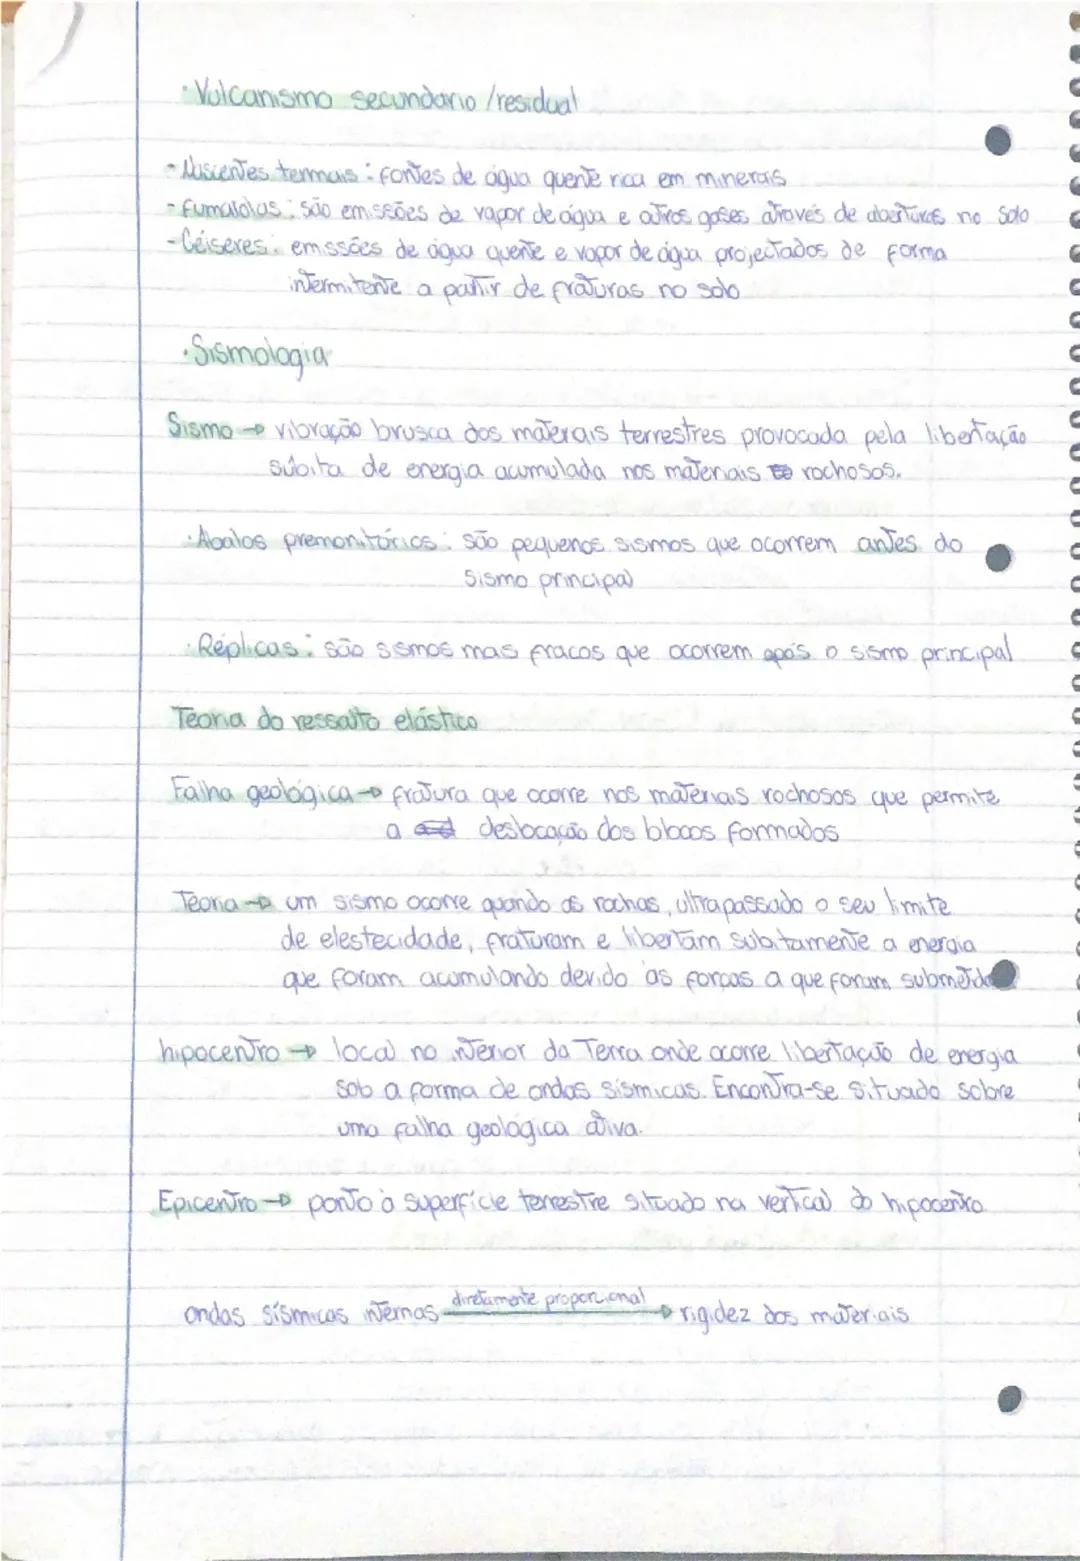 · Vulcanismo secundário /residual
- Nascentes termais : fontes de água quente rica em minerais
- fumarolas : são emissões de vapor de água e outros gases através de aberturas no solo
- Géiseres : emissões de água quente e vapor de água projectados de forma
intermitente a partir de fraturas no solo
· Sismologia
Sismo → vibração brusca dos materais terrestres provocada pela libertação
súbita de energia acumulada nos materiais rochosos.
· Abalos premonitórios : são pequenos sismos que ocorrem antes do
sismo principal
· Réplicas : são sismos mas fracos que ocorrem após o sismo principal
Teoria do ressalto elástico
Falha geológica → fratura que ocorre nos materiais rochosos que permite
a deslocação dos blocos formados
Teoria → um sismo ocorre quando as rochas, ultrapassado o seu limite
de elestecidade, fraturam e libertam subitamente a energia
que foram acumulando devido às forças a que foram
hipocentro → local no interior da Terra onde ocorre libertação de energia
sob a forma de ondas sísmicas. Encontra-se situado sobre
uma falha geológica ativa.
Epicentro → ponto à superfície terrestre situado na vertical do hipocentro
ondas sísmicas internas diretamente proporcional → rigidez dos materiais